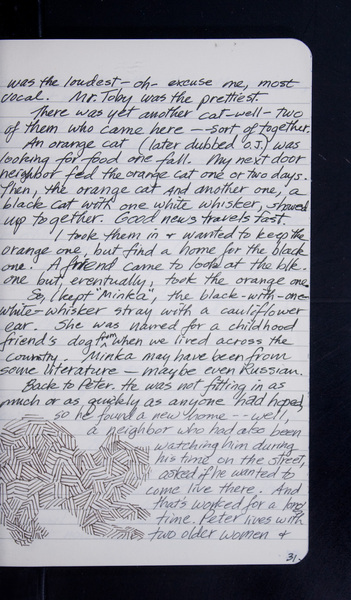 was the loudest - oh - excuse me, most
vocal. Mr. Toby was the prettiest.
There was yet another cat - well - two
of them who came here -- sort of together.
An orange cat (later dubbed O.J.) was
looking for food one fall. My next door
neighbor fed the orange cat one or two days.
Then, the orange cat And another one, a
black cat with one white whisker, showed
up together. Good news travels fast.
I took them in & wanted to keep the
orange one, but find a home for the black
one. A friend came to look at the blk.
one but, eventually, took the orange one.
So, I kept 'Minka', the black-with-one-
white-whisker stray with a cauliflower
ear. She was named for a childhood
friend's dog from when we lived across the
country. Minka may have been from
some literature - maybe even Russian.
Back to Peter. He was not fitting in as
much or as quickly as anyone had hoped,
so he found a new home -- well,
a neighbor who had also been
watching him during
his time on the street,
asked if he wanted to
come live there. And
that's worked for a long
time. Peter lives with
two older women &
31.